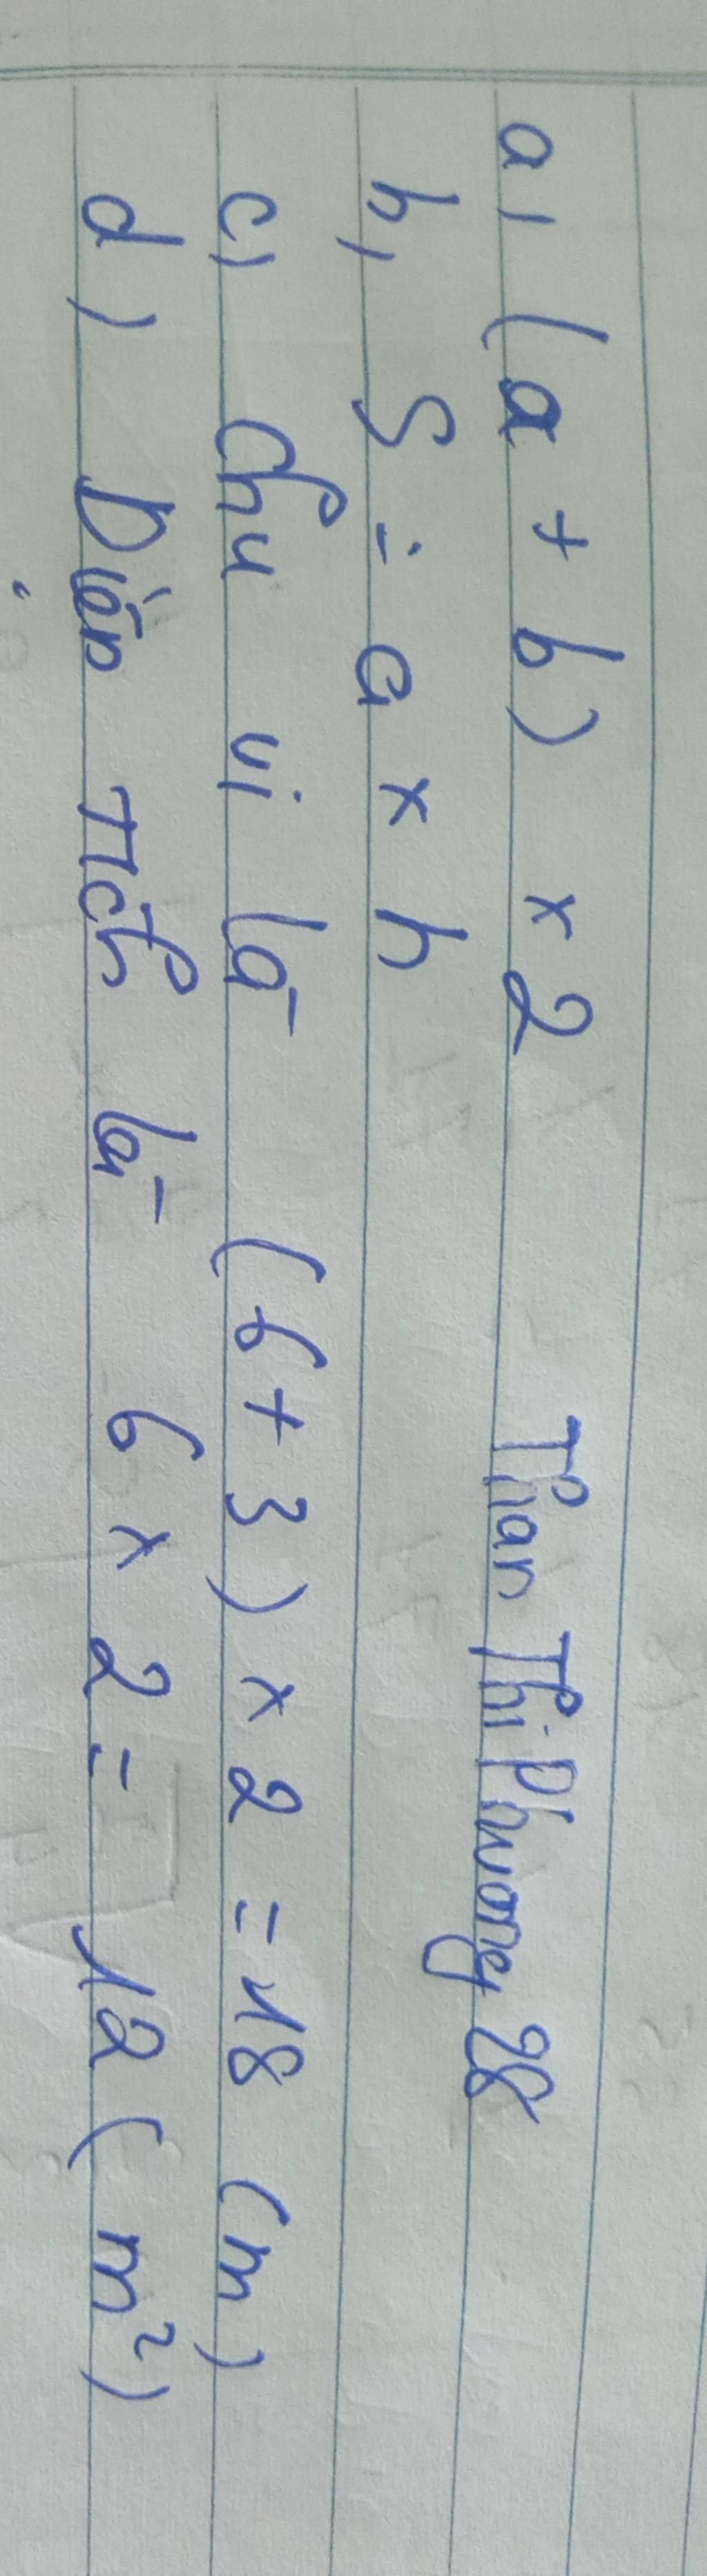 a, (a + b) x 2 Thân Thị Phương 28
b, S = a x h
c, Chu vi là (6 + 3) x 2 = 18 (m)
d) Diện tích là 6 x 2 = 12 (m²)